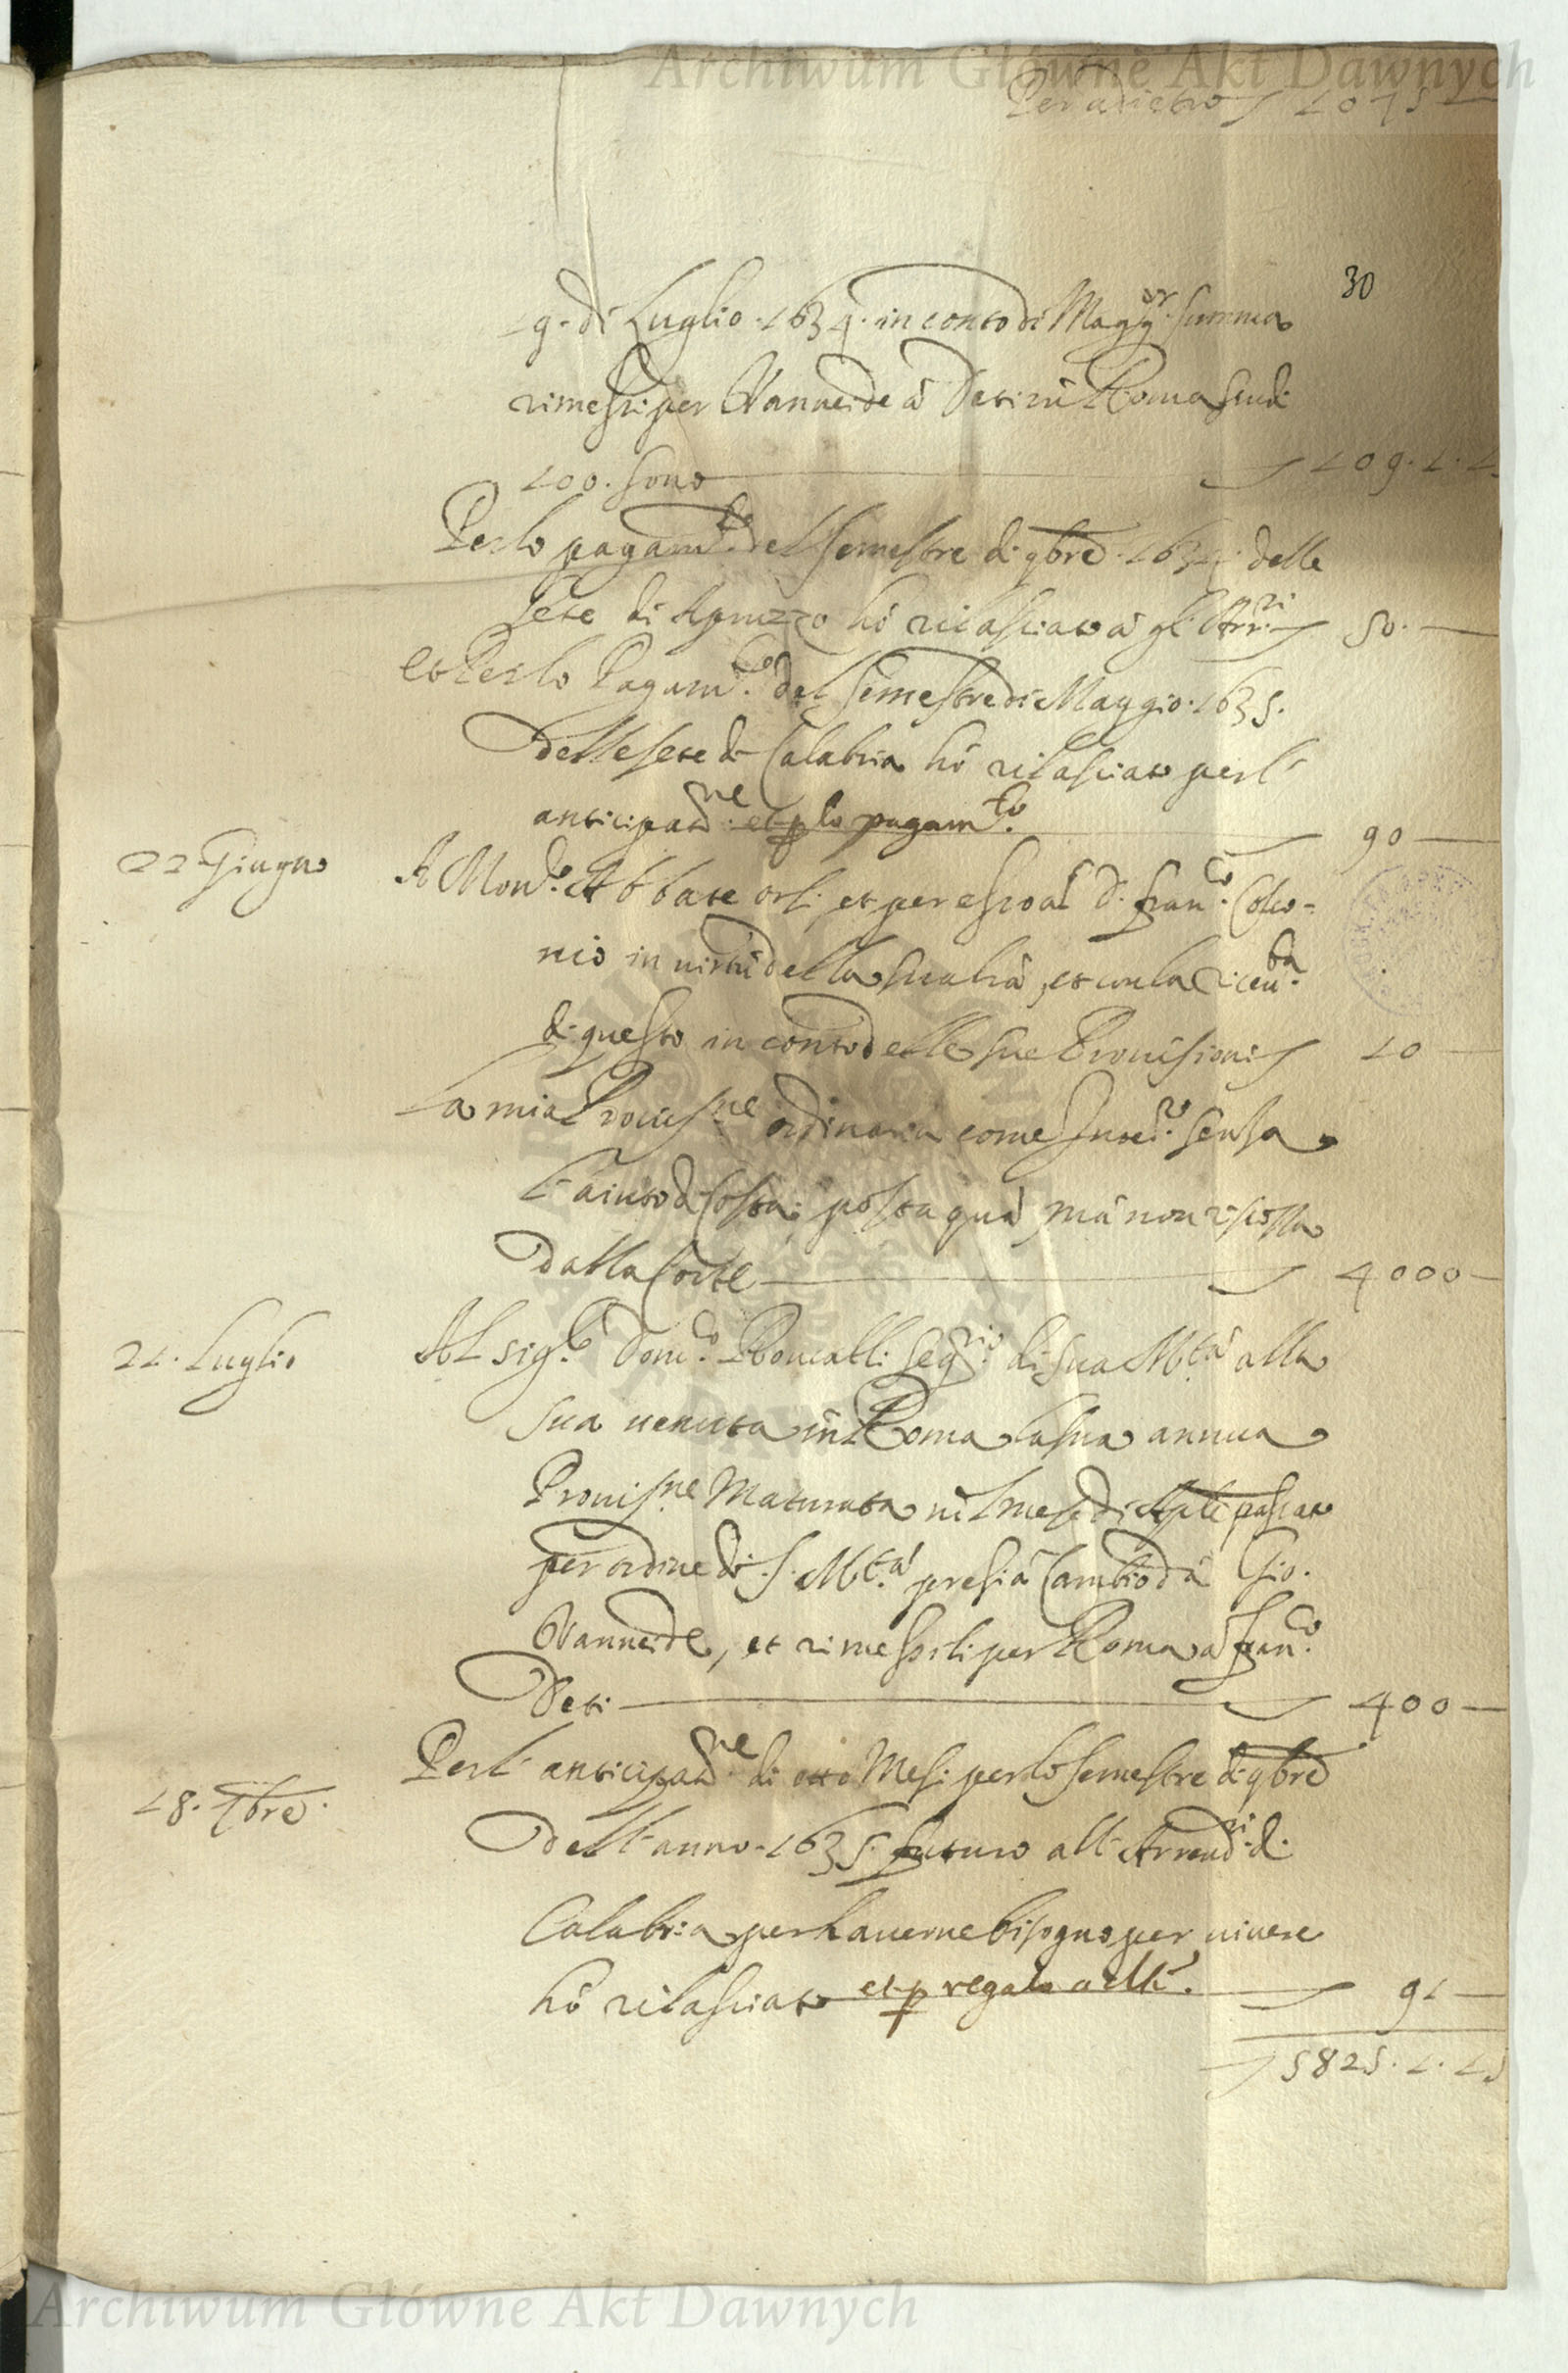 Archiwum Główne Akt Dawnych
Per adietro 1075
30
19. di Luglio. 1634. in conto di Magg.or summa
rimessi per Vanneide à Deti in Roma scudi
100. sono 109. 1. 1
Per lo pagam.to del semestre di 9bre. 1634. delle
sete di Apruzzo hò rilasciato à gl' Arr.ri 50.
et Per lo Pagam.to del semestre di Maggio. 1635.
delle sete di Calabria hò rilasciato per l'
anticipat.ne et p lo pagam.to 90
22 Giugno A Mons.r Abbate Ors: et per esso al D. Fran.co Colo=
nio in virtù della sua lrã, et con la riceu.ta
di questo in conto delle sue Prouisioni 10
La mia Prouis.ne ordinaria come Inte.r sensa
l' aiuto di Costa; posta quà, mà non riscossa
dalla Corte 4000
21. Luglio Al sig.r Dom.co Roncalli Seg.rio di sua M.tà alla
sua venuta in Roma la sua annua
Prouis.ne Maturata nel mese di Aple passato
per ordine di S. M.tà presi à Cambio dà Gio.
Vanneide, et rimessili per Roma à Fran.co
Deti 400
18. 7bre. Per l' anticipat.ne di otto Mesi per lo semestre di 9bre
dell' anno. 1635. futuro all' Arrend.ri di
Calabria per hauerne bisogno per viuere
hò rilasciato et p regalo alli. 91
5825. 1. 15
Archiwum Główne Akt Dawnych